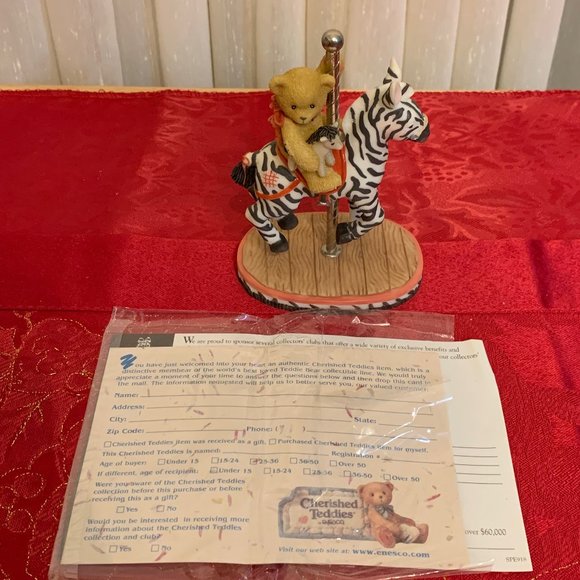 We are proud to sponsor several collectors' clubs that offer a wide variety of exclusive benefits and
our collectors'
You have just welcomed into your heart an authentic Cherished Teddies item, which is a
distinctive member of the world's best loved Teddy Bear collectible line. We would truly
appreciate a moment of your time to answer the questions below and then drop this card in
the mail. The information requested will help us to better serve you, our valued customer.
Name:
Address:
City: State:
Zip Code: Phone: ( )
Cherished Teddies item was received as a gift. Purchased Cherished Teddies item for myself.
This Cherished Teddies is named: Registration #
Age of buyer: Under 15 15-24 25-35 36-50 Over 50
If different, age of recipient: Under 15 15-24 25-35 36-50 Over 50
Were you aware of the Cherished Teddies
collection before this purchase or before
receiving this as a gift?
Yes No
Would you be interested in receiving more
information about the Cherished Teddies
collection and club?
Yes No
Cherished
Teddies
ENESCO
Visit our web site at: www.enesco.com
over $60,000
SPE919